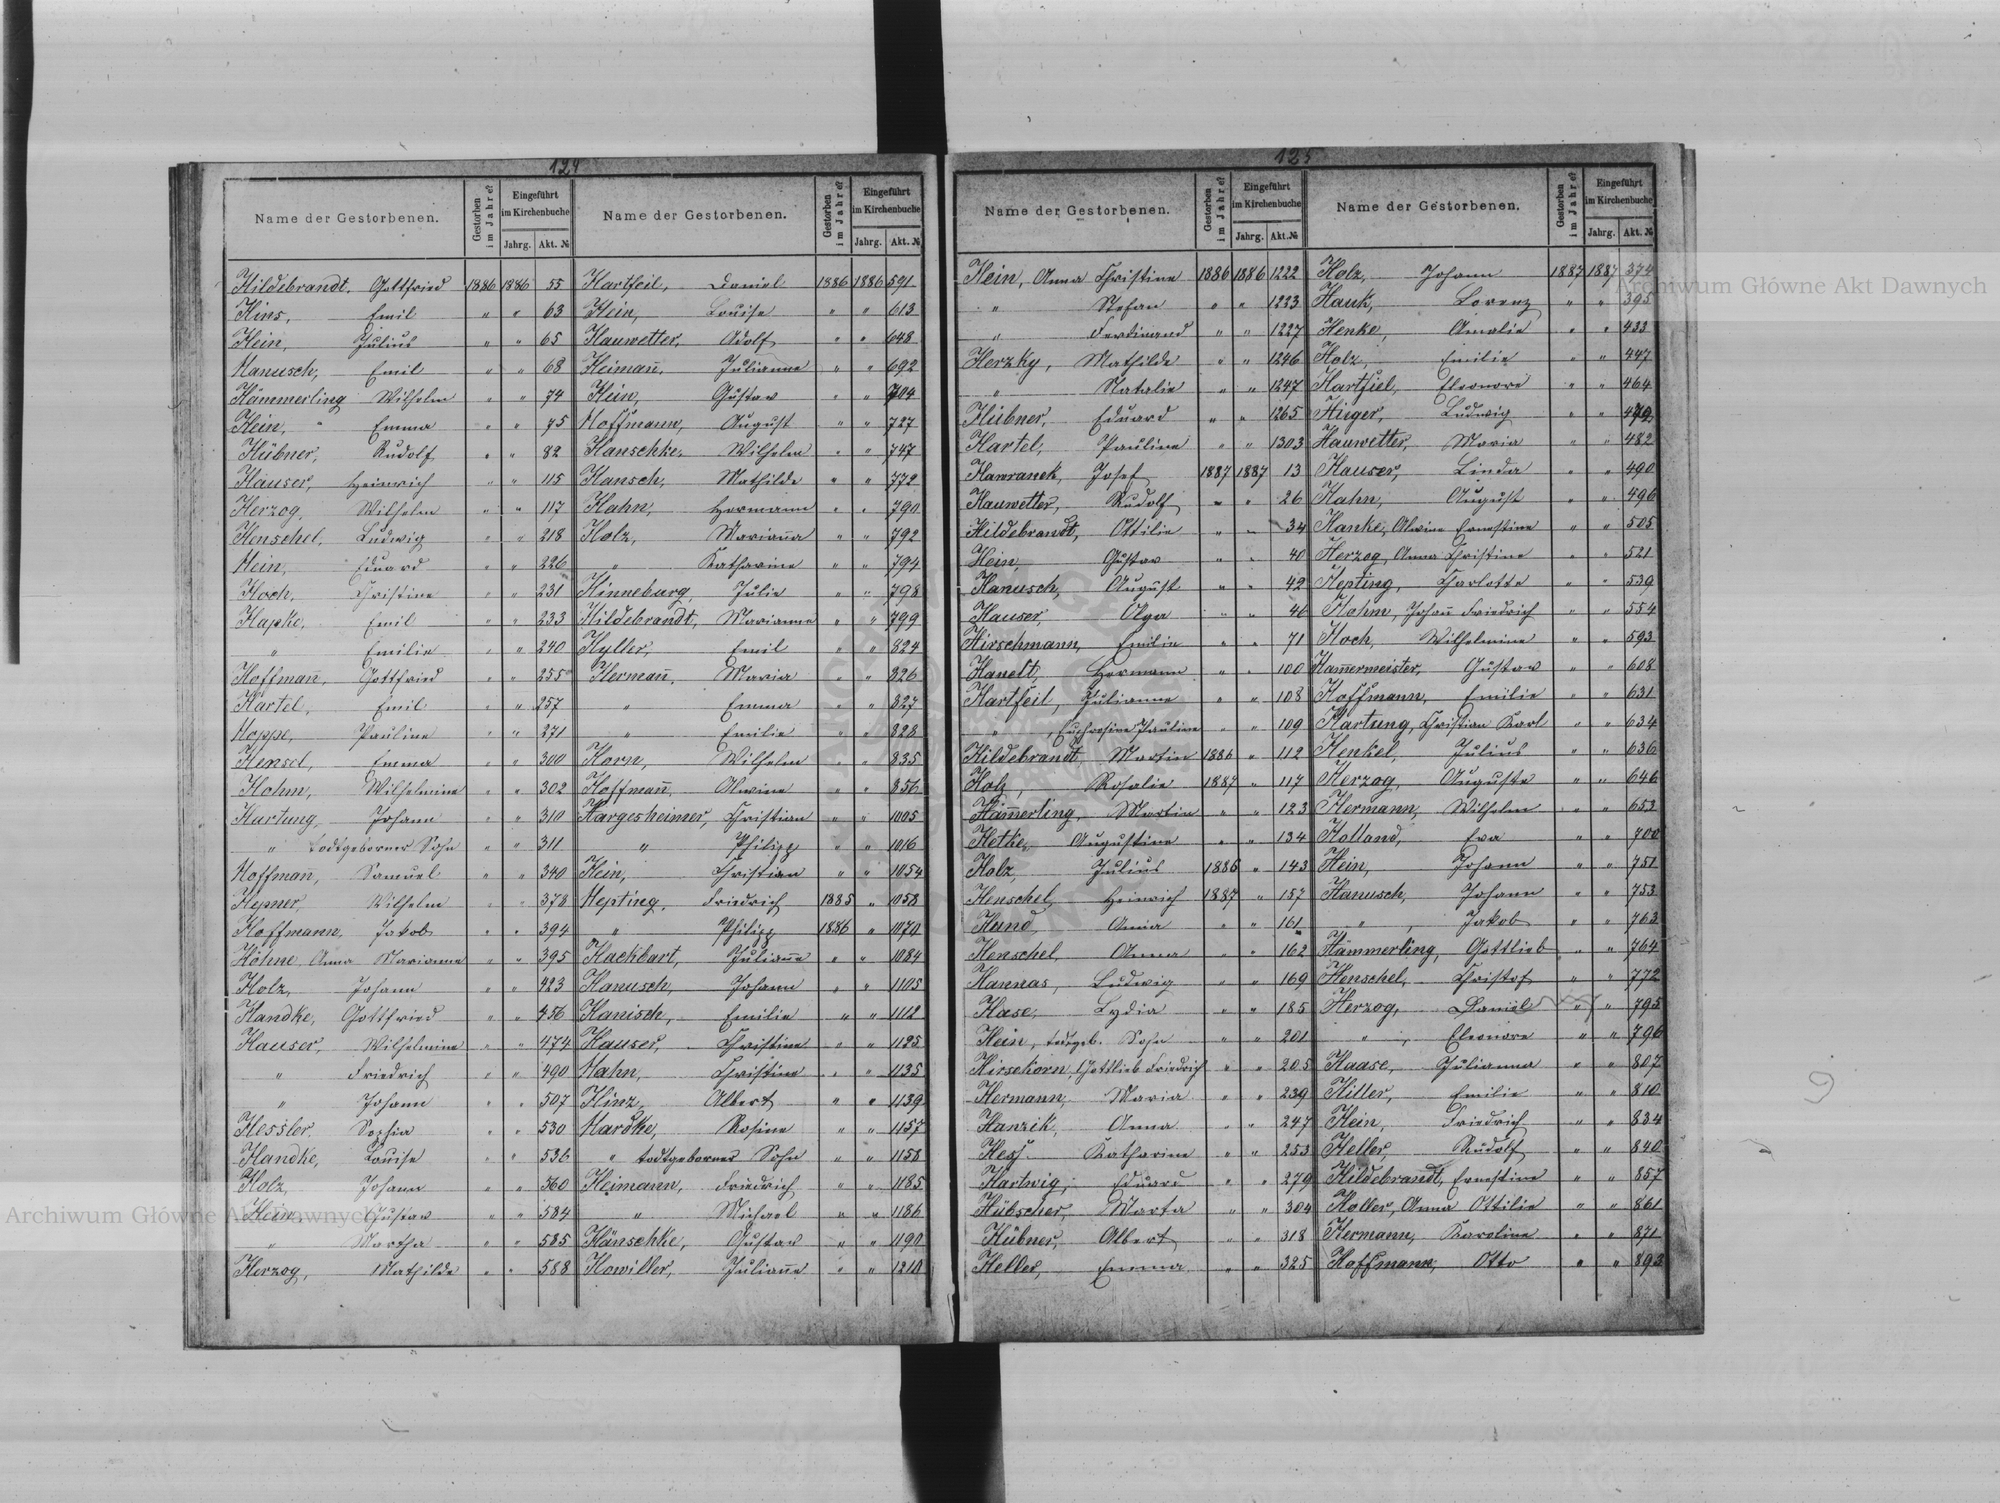 124
Name der Gestorbenen. Gestorben im Jahre? Eingeführt im Kirchenbuche Jahrg. Akt. №
Hildebrandt, Gottfried 1886 1886 55
Hins, Emil " " 63
Hein, Julius " " 65
Hanusch, Emil " " 68
Hämmerling Wilhelm " " 74
Hein, Emma " " 75
Hübner, Rudolf " " 82
Hauser, Heinrich " " 115
Herzog, Wilhelm " " 117
Henschel, Ludwig " " 218
Hein, Eduard " " 226
Hoch, Christine " " 231
Hapke, Emil " " 233
" Emilie " " 240
Hoffmañ, Gottfried " " 255
Hartel, Emil " " 257
Hoppe, Pauline " " 271
Hensel, Emma " " 300
Hohm, Wilhelmine " " 302
Hartung, Johann " " 310
" todtgeborner Sohn " " 311
Hoffmañ, Samuel " " 340
Hepner, Wilhelm " " 378
Hoffmann, Jakob " " 394
Höhne Anna Marianne " " 395
Holz, Johann " " 423
Handke, Gottfried " " 456
Hauser, Wilhelmine " " 474
" Friedrich " " 490
" Johann " " 507
Hessler, Sophia " " 530
Handke, Louise " " 536
Holz, Johann " " 560
Hein, Gustav " " 584
" Martha " " 585
Herzog, Mathilde " " 588
Name der Gestorbenen. Gestorben im Jahre? Eingeführt im Kirchenbuche Jahrg. Akt. №
Hartfeil, Daniel 1886 1886 591
Hein, Louise " " 613
Hauwetter, Adolf " " 648
Heimañ, Julianne " " 692
Hein, Gustav " " 704
Hoffmann, August " " 727
Hanschke, Wilhelm " " 747
Hansch, Mathilde " " 772
Hahn, Hermann " " 790
Holz, Mariaña " " 792
" Katharine " " 794
Hinneburg, Julie " " 798
Hildebrandt, Marianne " " 799
Hyller, Emil " " 824
Hermañ, Maria " " 826
" Emma " " 827
" Emilie " " 828
Horn, Wilhelm " " 835
Hoffmañ, Alwine " " 856
Hargesheimer, Christian " " 1005
" Philipp " " 1016
Hein, Christian " " 1054
Hepting, Friedrich 1885 " 1058
" Philipp 1886 " 1070
Hackbart, Juliañe " " 1084
Hanusch, Johann " " 1105
Hanisch, Emilie " " 1112
Hauser, Christine " " 1125
Hahn, Christine " " 1135
Hinz, Albert " " 1139
Hardke, Rosine " " 1157
" todtgeborner Sohn " " 1158
Heimann, Friedrich " " 1185
" Michael " " 1186
Hänschke, Gustav " " 1190
Howiller, Juliañe " " 1210
125
Name der Gestorbenen. Gestorben im Jahre? Eingeführt im Kirchenbuche Jahrg. Akt. №
Hein, Anna Christine 1886 1886 1222
" Stefan " " 1223
" Ferdinand " " 1227
Herzky, Mathilde " " 1246
" Natalie " " 1247
Hübner, Eduard " " 1265
Hartel, Pauline " " 1303
Hawranek, Josef 1887 1887 13
Hauwetter, Rudolf " " 26
Hildebrandt, Ottilie " " 34
Hein, Gustav " " 40
Hanusch, August " " 42
Hauser, Olga " " 46
Hirschmann, Emilie " " 71
Hanelt, Hermann " " 100
Hartfeil, Julianne " " 108
" , Euphrosine Pauline " " 109
Hildebrandt, Martin 1886 " 112
Holz, Rosalie 1887 " 117
Häm̃erling, Martin " " 123
Hetke, Augustine " " 134
Holz, Julius 1886 " 143
Henschel, Heinrich 1887 " 157
Hund, Anna " " 161
Henschel, Anna " " 162
Hannas, Ludwig " " 169
Hase, Lydia " " 185
Hein, todtgeb. Sohn " " 201
Hirsekorn, Gottlieb Friedrich " " 205
Hermann, Maria " " 239
Hanzik, Anna " " 247
Hess, Katharine " " 253
Hartwig, Eduard " " 279
Hübscher, Marta " " 304
Hübner, Albert " " 318
Heller, Emma " " 325
Name der Gestorbenen. Gestorben im Jahre? Eingeführt im Kirchenbuche Jahrg. Akt. №
Holz, Johann 1887 1887 374
Hauk, Lorenz " " 395
Henke, Amalie " " 433
Holz, Emilie " " 447
Hartfiel, Eleonore " " 464
Hieger, Ludwig " "
Hauwetter, Maria " " 482
Hauser, Linda " " 490
Hahn, August " " 496
Hanke, Alwine Ernestine " " 505
Herzog, Anna Christine " " 521
Hepting, Charlotte " " 539
Hahm, Johañ Friedrich " " 554
Hoch, Wilhelmine " " 593
Ham̃ermeister, Gustav " " 608
Hoffmann, Emilie " " 631
Hartung, Christian Karl " " 634
Henkel, Julius " " 636
Herzog, Auguste " " 646
Hermann, Wilhelm " " 653
Holland, Eva " " 700
Hein, Johann " " 751
Hanusch, Johann " " 753
" , Jakob " " 763
Hämmerling, Gottlieb " " 764
Henschel, Christof " " 772
Herzog, Daniel " " 795
" , Eleonore " " 796
Haase, Julianna " " 807
Hiller, Emilie " " 810
Hein, Friedrich " " 834
Heller, Rudolf " " 840
Hildebrandt, Ernestine " " 857
Holler, Anna Ottilie " " 861
Hermann, Karoline " " 871
Hoffmann, Otto " " 893
Archiwum Główne Akt Dawnych
Archiwum Główne Akt Dawnych